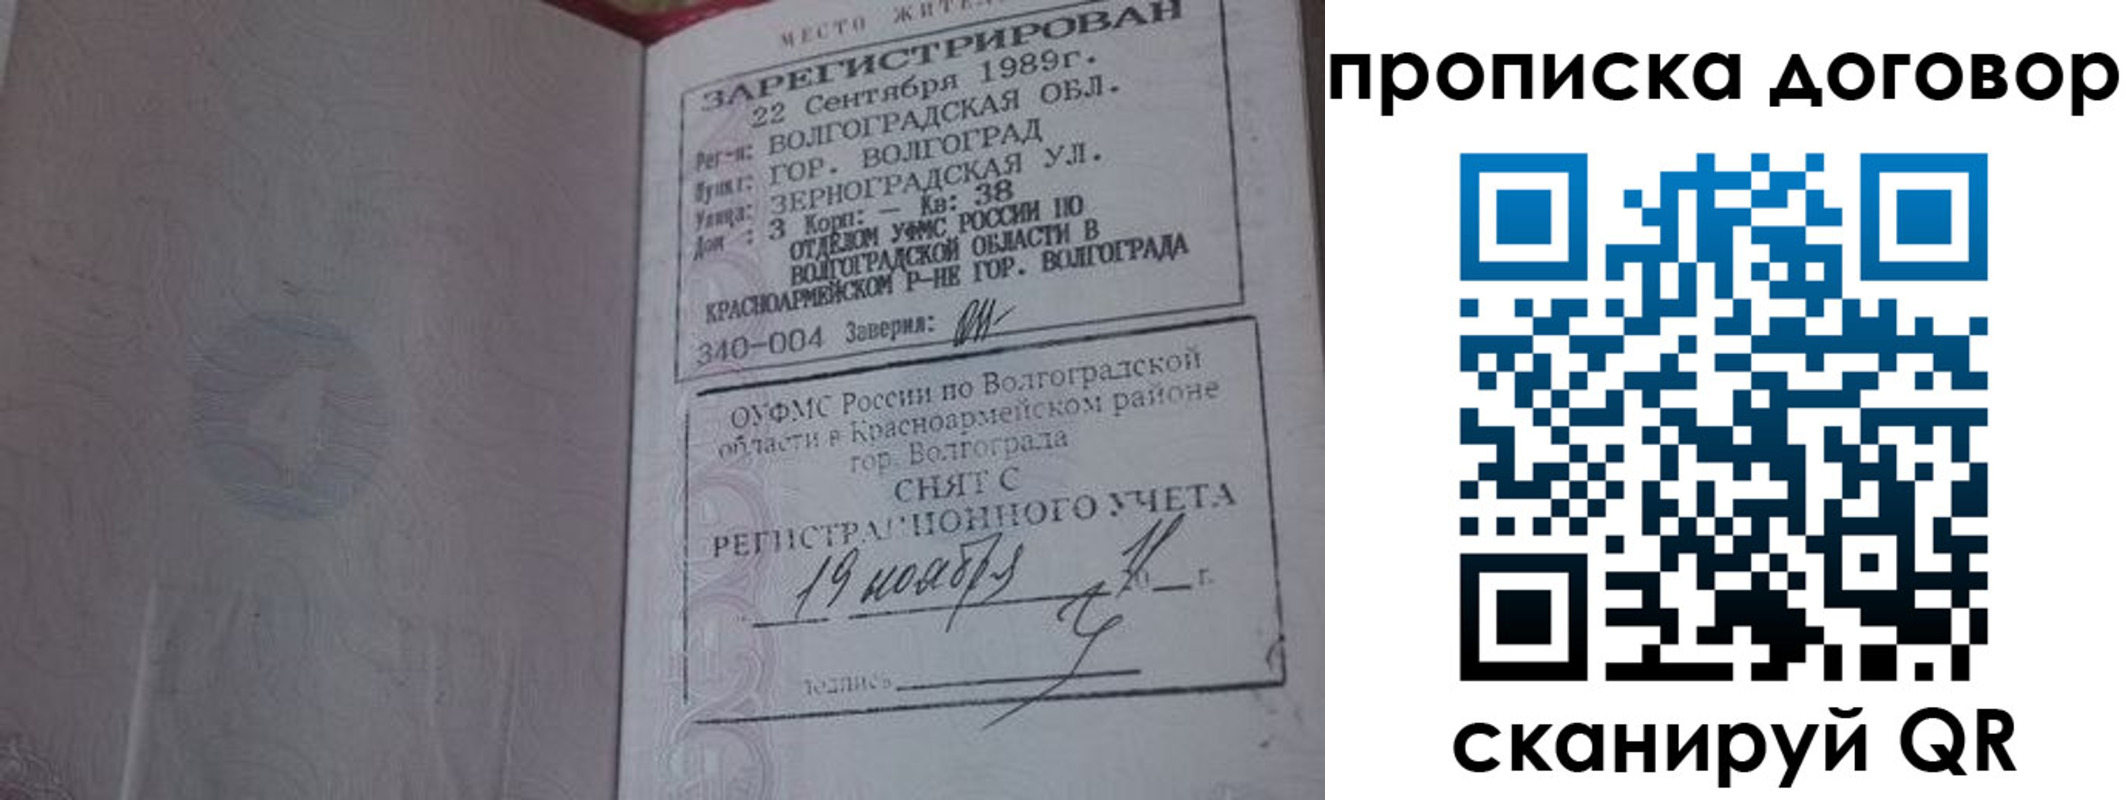 МЕСТО
ЗАРЕГИСТРИРОВАН
22 Сентября 1989г.
Рег-н: ВОЛГОГРАДСКАЯ ОБЛ.
Пункт: ГОР. ВОЛГОГРАД
Улица: ЗЕРНОГРАДСКАЯ УЛ.
Дом : 3 Корп: — Кв: 38
ОТДЕЛОМ УФМС РОССИИ ПО
ВОЛГОГРАДСКОЙ ОБЛАСТИ В
КРАСНОАРМЕЙСКОМ Р-НЕ ГОР. ВОЛГОГРАДА
340-004 Заверил:
ОУФМС России по Волгоградской
области в Красноармейском районе
гор. Волгограда
СНЯТ С
РЕГИСТРАЦИОННОГО УЧЕТА
19 ноября 20 г.
подпись
прописка договор
сканируй QR